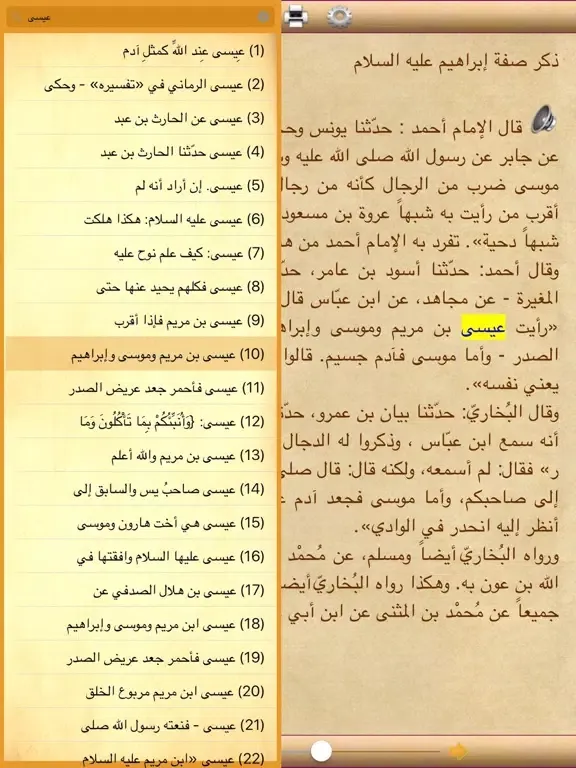 عيسى
(1) عِيسى عِند اللهِّ كمثلِ آدم
(2) عيسى الرماني في «تفسيره» - وحكى
(3) عيسى عن الحارث بن عبد
(4) عيسى حدّثنا الحارث بن عبد
(5) عيسى. إن أراد أنه لم
(6) عيسى عليه السلام: هكذا هلكت
(7) عيسى: كيف علم نوح عليه
(8) عيسى فكلهم يحيد عنها حتى
(9) عيسى بن مريم فإذا أقرب
(10) عيسى بن مريم وموسى وإبراهيم
(11) عيسى فأحمر جعد عريض الصدر
(12) عيسى: {وَأُنَبِّئُكُمْ بِمَا تَأْكُلُونَ وَمَا
(13) عيسى بن مريم والله أعلم
(14) عيسى صاحبُ يس والسابق إلى
(15) عيسى هي أخت هارون وموسى
(16) عيسى عليها السلام وافقتها في
(17) عيسى بن هلال الصدفي عن
(18) عيسى ابن مريم وموسى وإبراهيم
(19) عيسى فأحمر جعد عريض الصدر
(20) عيسى ابن مريم مربوع الخلق
(21) عيسى - فنعته رسول الله صلى
(22) عيسى «ابن مريم عليه السلام
ذكر صفة إبراهيم عليه السلام
قال الإمام أحمد : حدّثنا يونس
عن جابر عن رسول الله صلى الله عليه
موسى ضرب من الرجال كأنه من رجال
أقرب من رأيت به شبهاً عروة بن مسعود
شبهاً دحية». تفرد به الإمام أحمد من
وقال أحمد: حدّثنا أسود بن عامر،
المغيرة - عن مجاهد، عن ابن عبّاس قال
«رأيت عيسى بن مريم وموسى
الصدر - وأما موسى فآدم جسيم. قالوا
يعني نفسه».
وقال البُخاريّ: حدّثنا بيان بن عمرو،
أنه سمع ابن عبّاس ، وذكروا له الدجال
ر» فقال: لم أسمعه، ولكنه قال:
إلى صاحبكم، وأما موسى فجعد آدم
أنظر إليه انحدر في الوادي».
ورواه البُخاريّ أيضاً ومسلم، عن مُحمْد
الله بن عون به. وهكذا رواه البُخاريّ
جميعاً عن مُحمْد بن المثنى عن ابن أبي